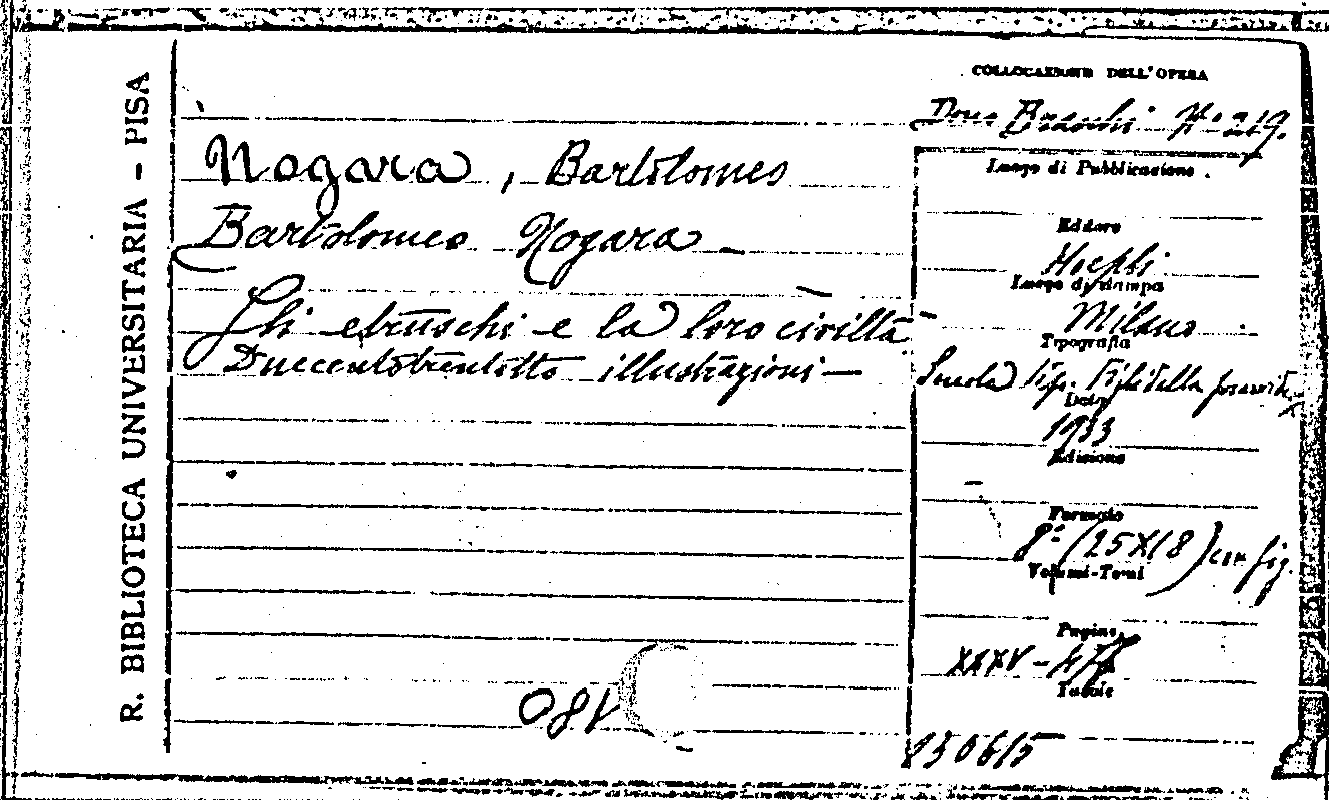 R. BIBLIOTECA UNIVERSITARIA - PISA
Nogara, Bartolomeo
Bartolomeo Nogara -
Gli etruschi e la loro civiltà -
Duecentotrentotto illustrazioni -
COLLOCAZIONE DELL'OPERA
Dono
Luogo di Pubblicazione
Editore
Hoepli
Luogo di stampa
Milano
Tipografia
Scuola Tip. Figli della
Data
1933
Edizione
Formato
8° (25X18) con fig.
Volumi-Tomi
Pagine
XXXV -
Tavole
130615